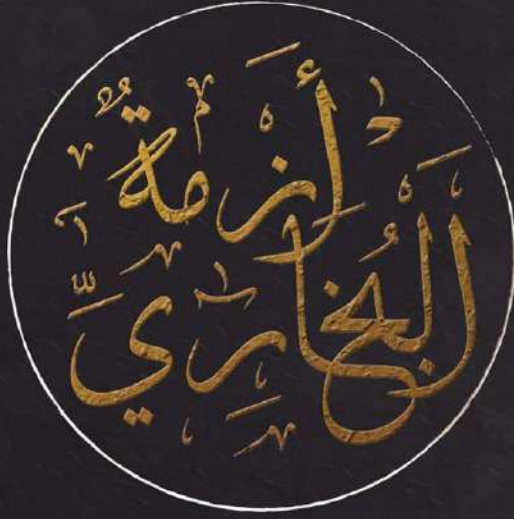 أزمة
البخاريّ